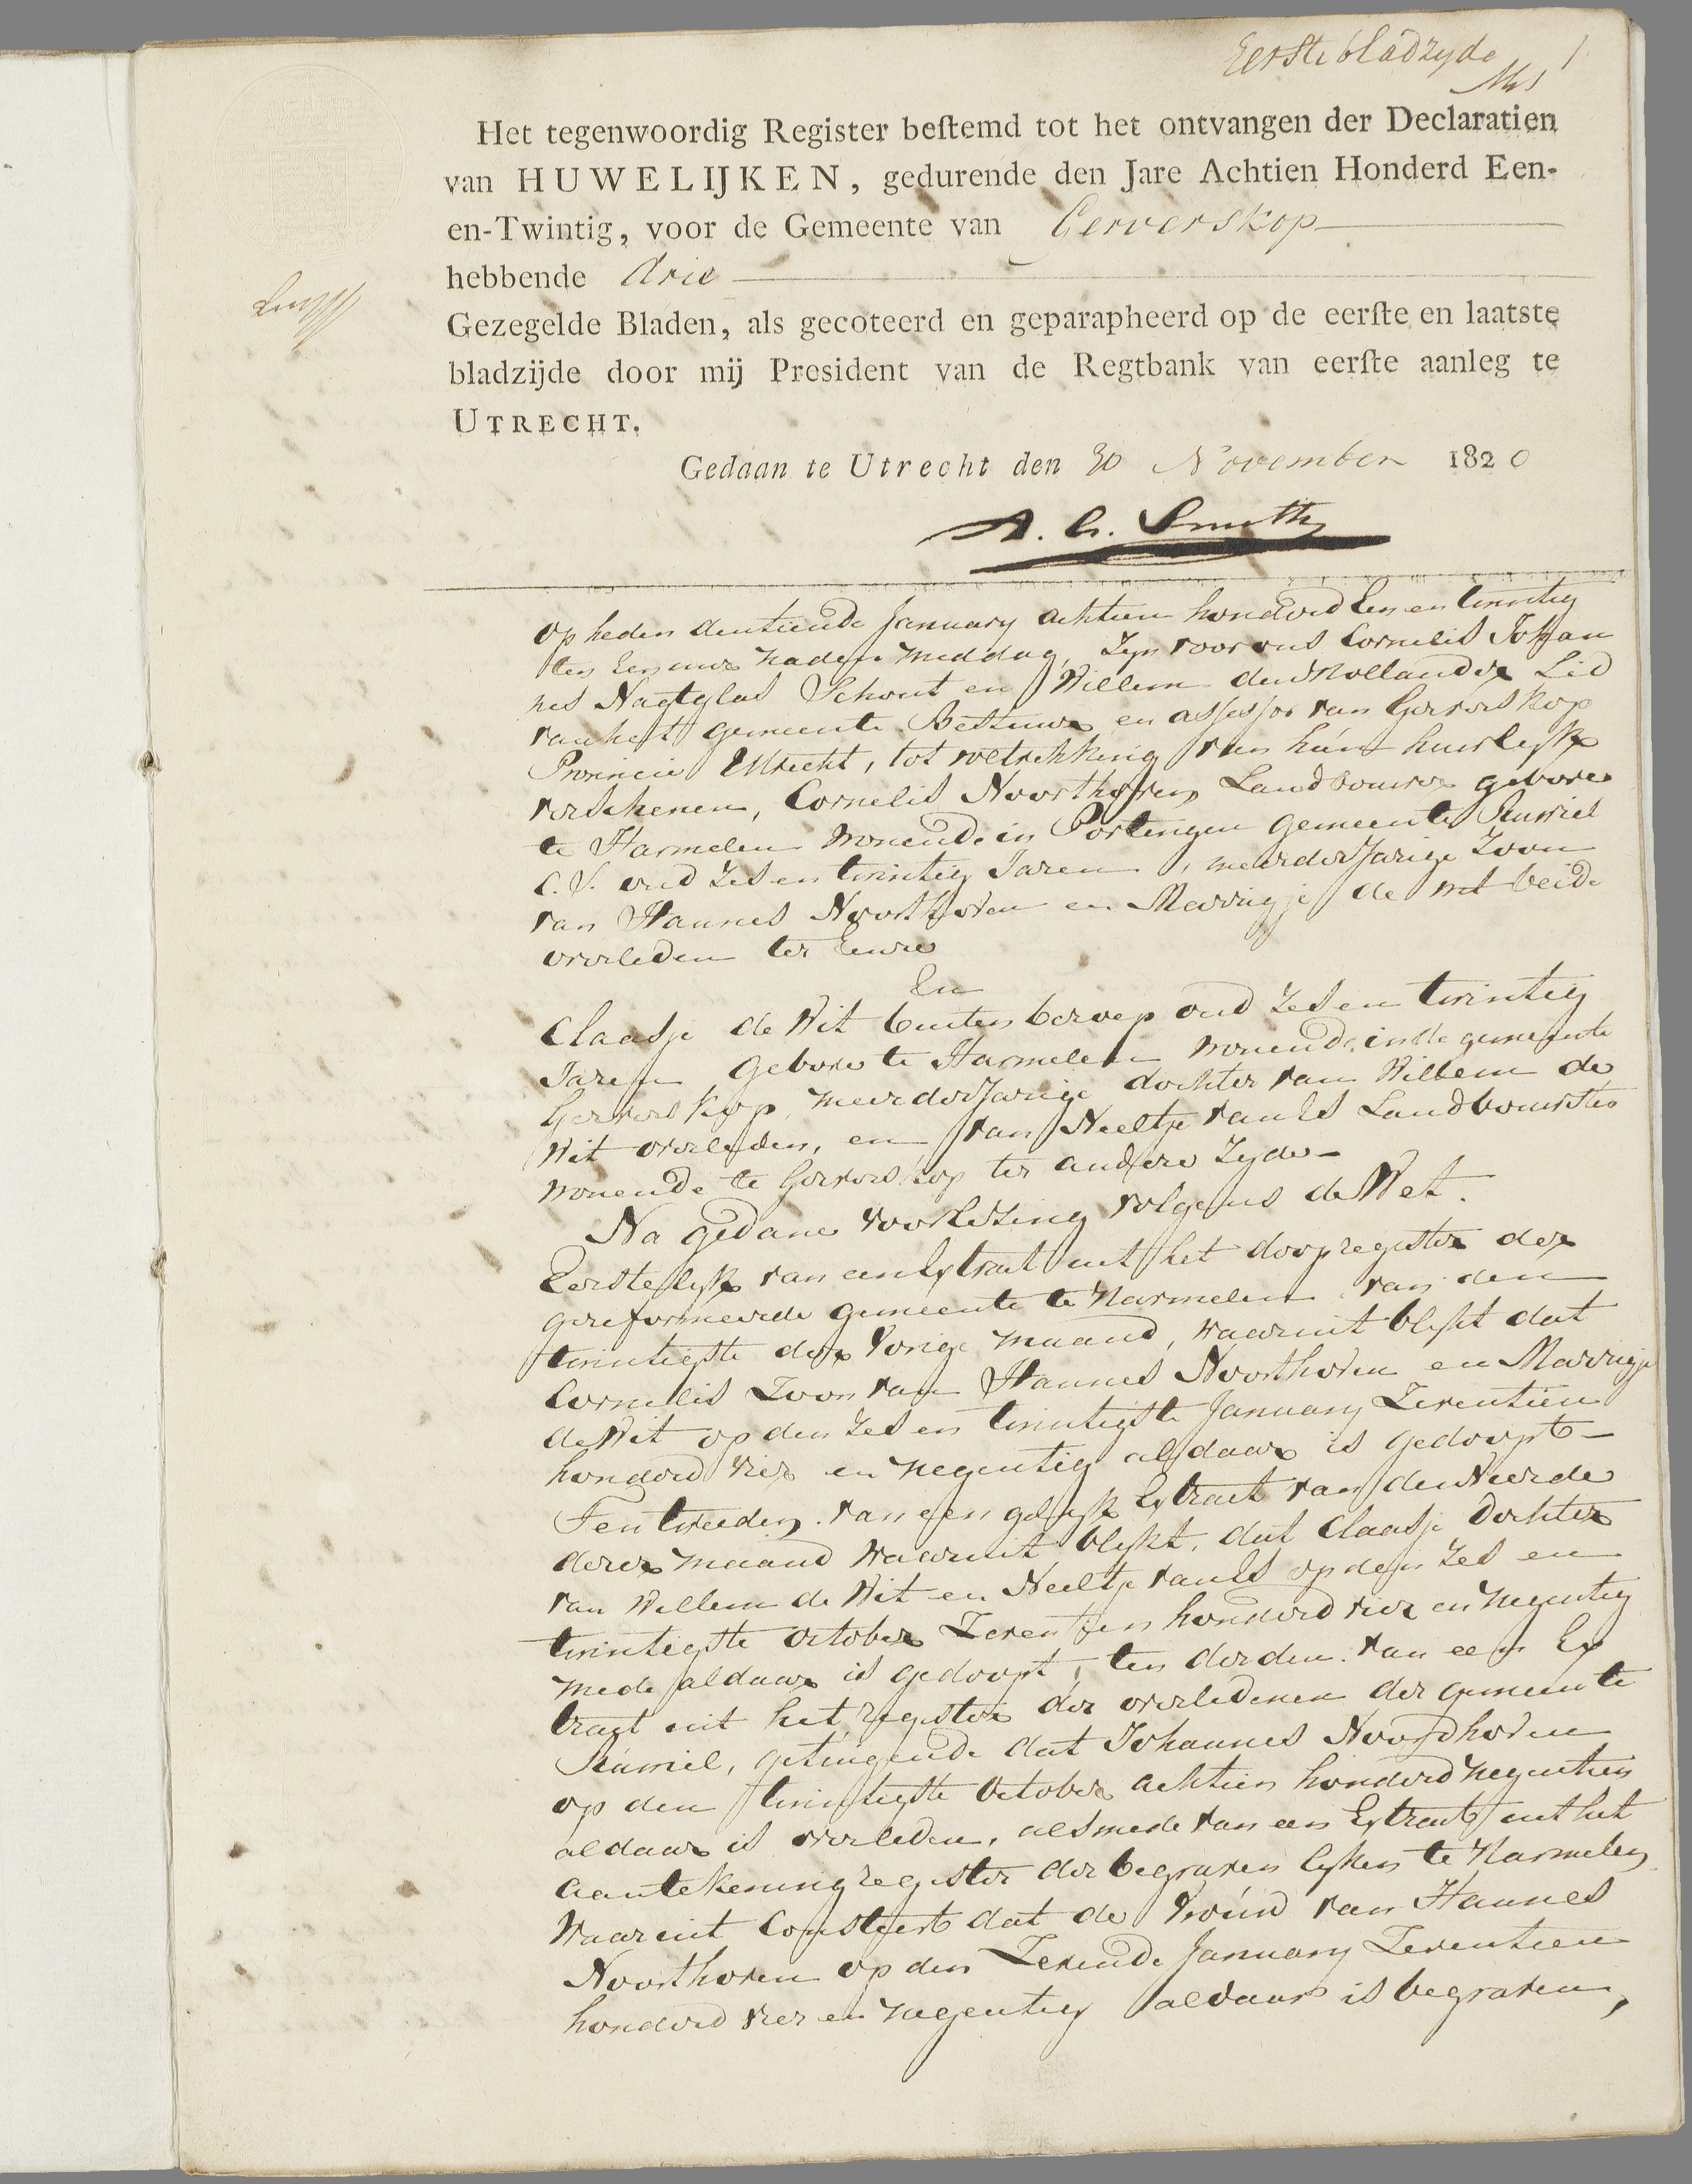 Eerste bladzyde 1
Het tegenwoordig Register beſtemd tot het ontvangen der Declaratien
van HUWELIJKEN, gedurende den Jare Achtien Honderd Een-
en-Twintig, voor de Gemeente van Gerverskop
hebbende drie
Gezegelde Bladen, als gecoteerd en geparapheerd op de eerſte en laatste
bladzijde door mij President van de Regtbank van eerſte aanleg te
UTRECHT.
Gedaan te Utrecht den 30 November 1820
op heden dertiende January achtien honderd Een en twintig
ten Een uure nade middag, Zyn voor ons Cornelis Johan
nes Nagtglas Schout en Willem den Hollander Lid
van het gemeente Bestuur en assessor van Gerverskop
Provincie Utrecht, tot voltrekking van hún huwlyk
verschenen, Cornelis Noorthoven Landbouwer gebore
te Harmelen wonende in Portengen gemeente Ruwiel
C.S. oud Zes en twintig Jaren, meerderjarige Zoon
van Hannes Noorthoven en Marrigje de Wit beide
overleden ter Eenre
En
Claasje de Wit buiten beroep oud Zes en twintig
Jaren gebore te Harmelen wonende in de gemeente
Gerverskop, meerderjarige dochter van Willem de
Wit overleden, en van Neeltje van Es Landbouwster
wonende te Gerverskop ter andere Zyde
Na gedane voorlezing volgens de Wet.
Eerstelyk van een Extract uit het doopregister der
gereformeerde gemeente te Harmelen van den
twintigste der vorige maand, waaruit blykt dat
Cornelis Zoon van Hannes Noorthoven en Marrigje
de Wit op den Zes en twintigste January Zeventien
honderd vier en negentig aldaar is gedoopt
Ten tweeden. van een gelyk Extract van den vierde
dezer maand waaruit blykt, dat Claasje Dochter
van Willem de Wit en Neeltje van Es op den Zes en
twintigste October Zeventien honderd vier en negentig
mede aldaar is gedoopt, ten derden. van een Ex
tract uit het register der overledenen der gemeente
Ruwiel, getuigende dat Johannes Noordhoven
op den twintigste October achtien honderd negentien
aldaar is overleden, alsmede van een Extract uit het
aantekening register der begraven lyken te Harmelen
waaruit Consteert dat de vrouw van Hannes
Noorthoven op den Zevende January Zeventien
honderd vier en negentig aldaar is begraven,